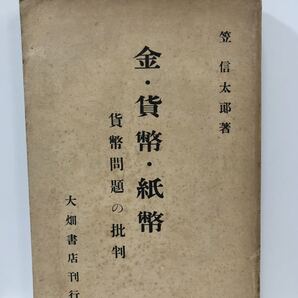 笠信太郎著
金・貨幣・紙幣
貨幣問題の批判
大畑書店刊行